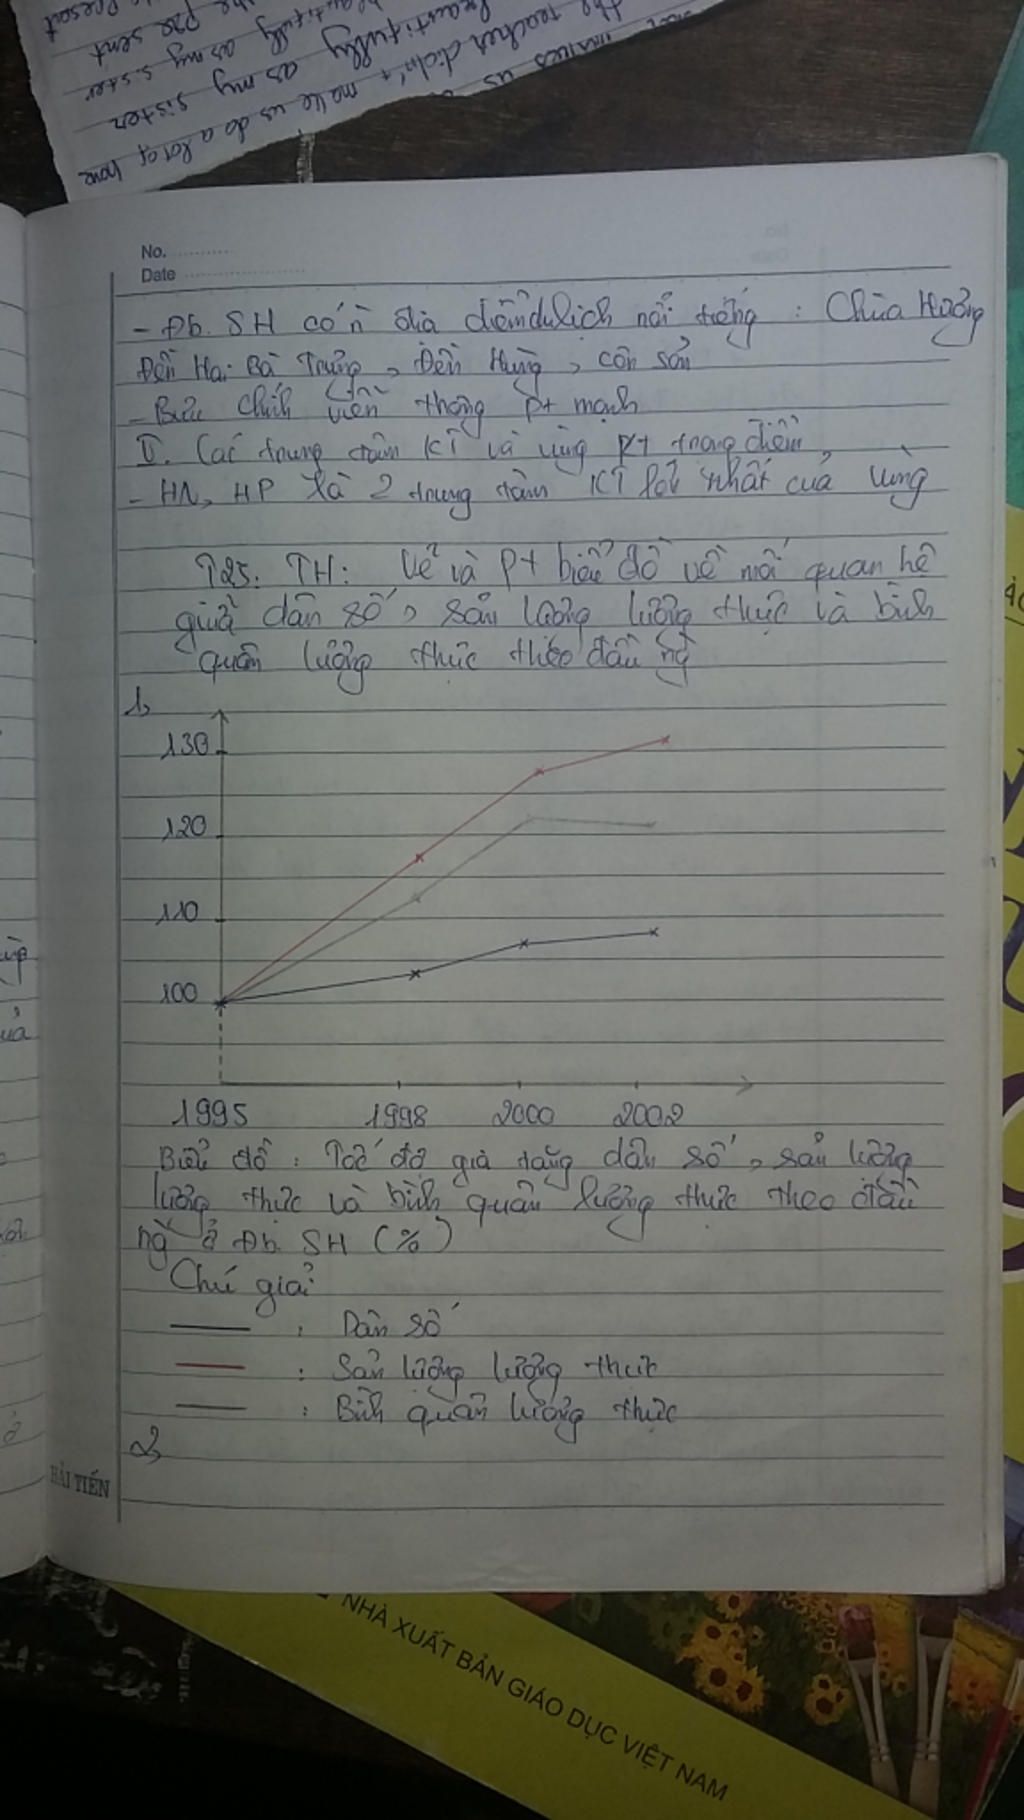 the Present
beautifully as my sister
the teacher didn't make us do a lot of home
No.
Date
- Đb. SH có n` địa điểm du lịch nổi tiếng : Chùa Hương
Đền Hai Bà Trưng, Đền Hùng, Côn Sơn
- Bưu chính viễn thông p+ mạnh
V. Các trung tâm KT và vùng KT trọng điểm
- HN, HP là 2 trung tâm KT lớn nhất của vùng
T25. TH: Vẽ và p+ biểu đồ về mối quan hệ
giữa dân số, sản lượng lương thực và bình
quân lương thực theo đầu ng`
1,
130
120
110
100
1995 1998 2000 2002
Biểu đồ : Tốc độ gia tăng dân số, sản lượng
lương thực và bình quân lương thực theo đầu
ng` ở Đb. SH (%)
Chú giải
: Dân số
: Sản lượng lương thực
: Bình quân lương thực
2,
HẢI TIẾN
NHÀ XUẤT BẢN GIÁO DỤC VIỆT NAM